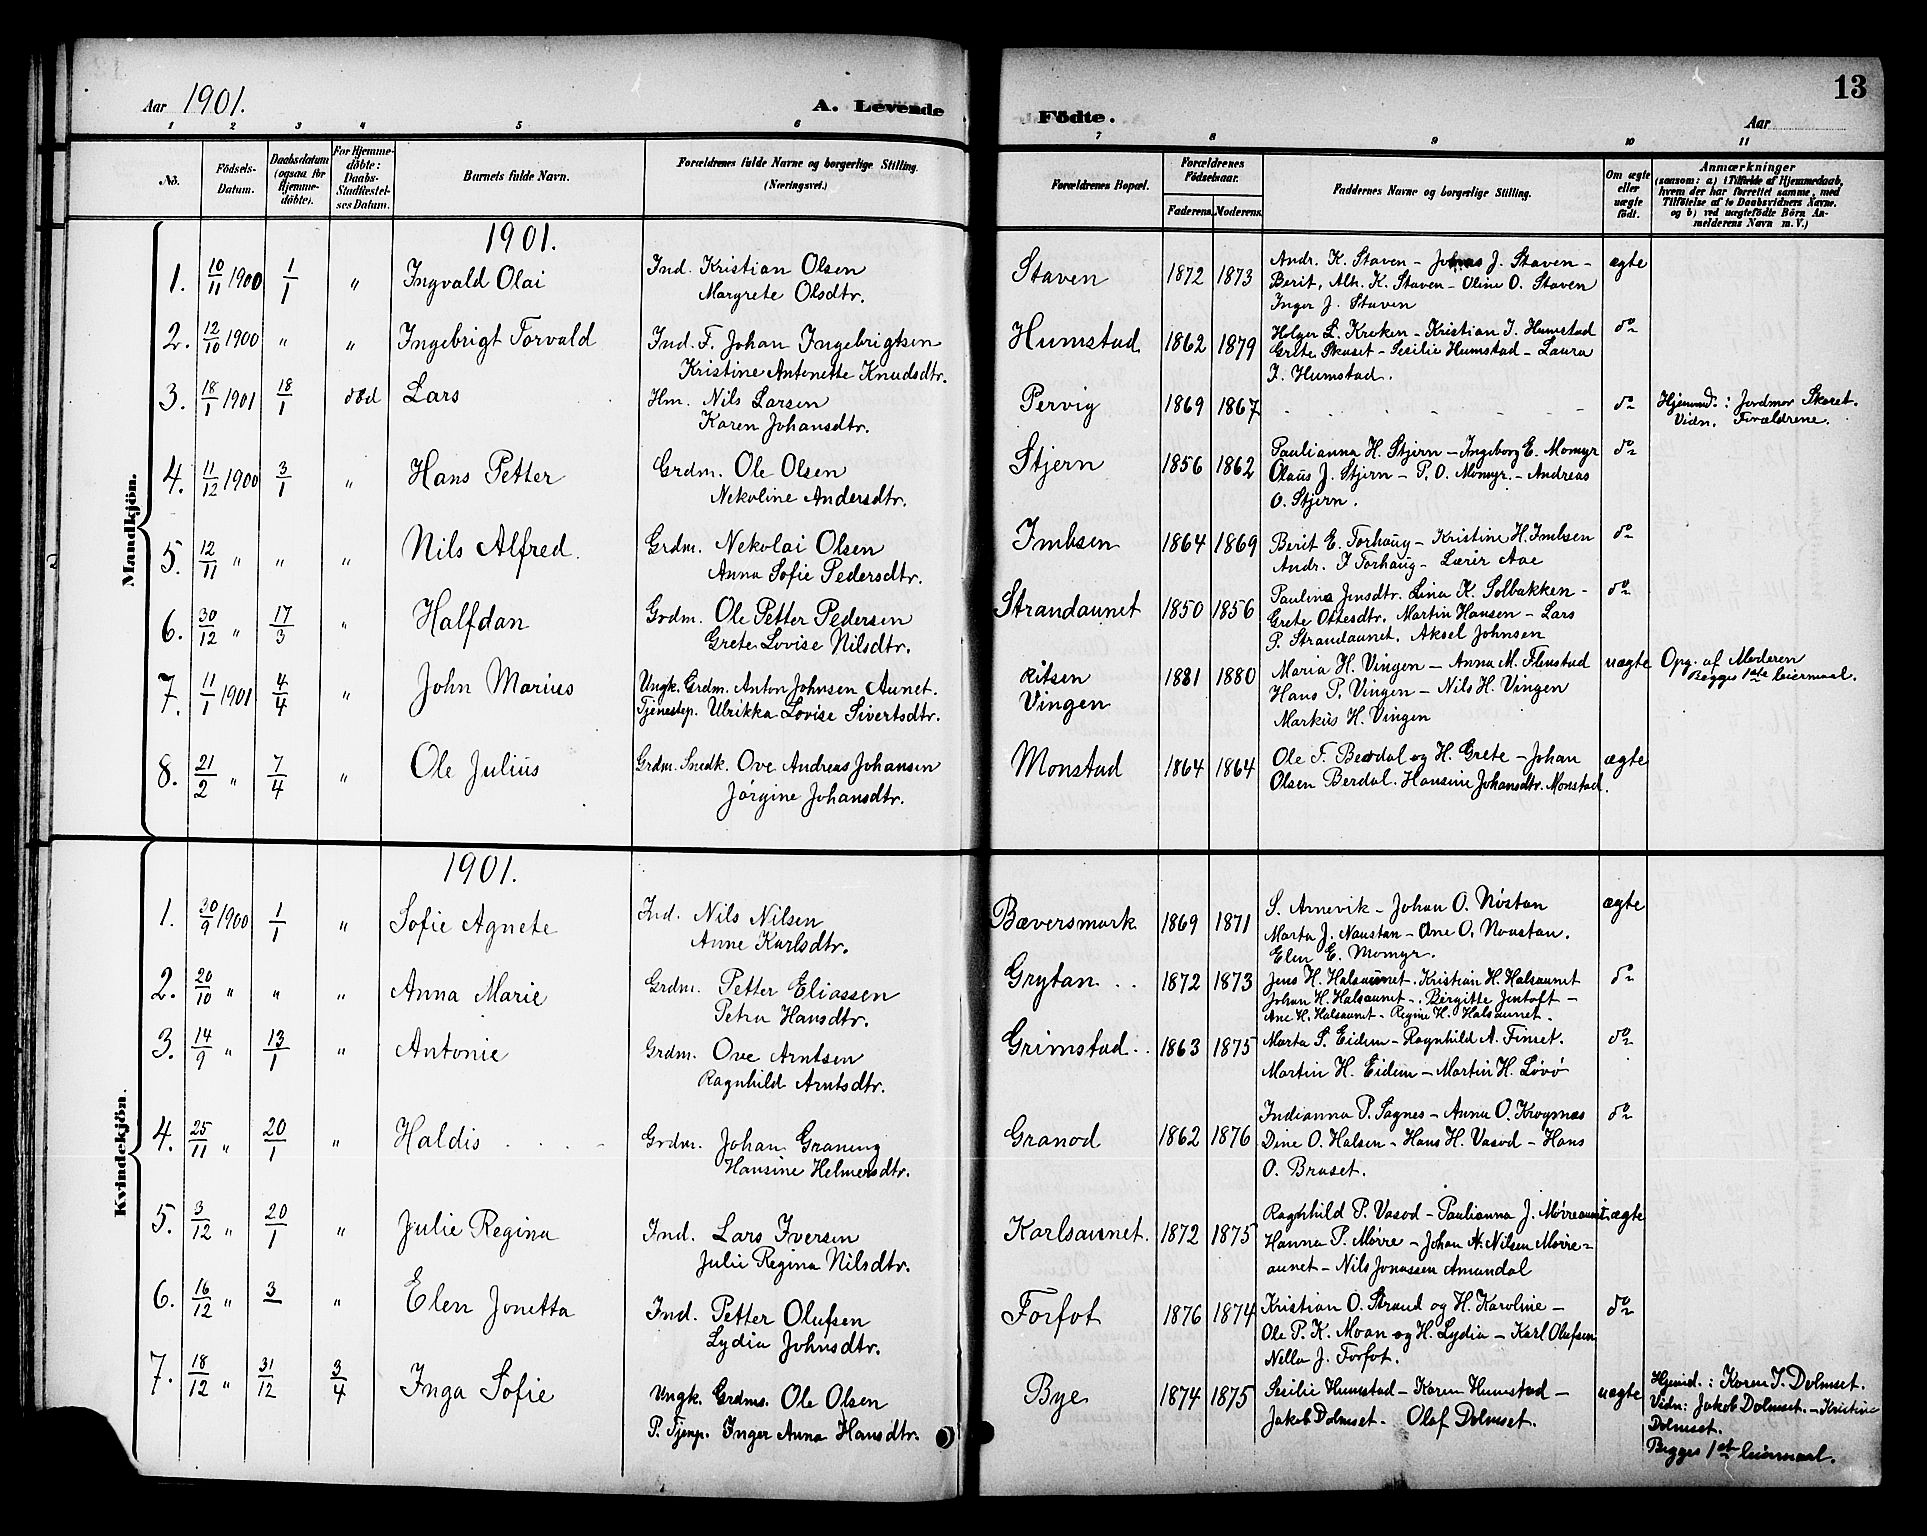 13
Aar 1901. A. Levende Födte. Aar
1 2 3 4 5 6 7 8 9 10 11
No. Födsels-Datum. Daabsdatum (ogsaa for Hjemme-döbte). For Hjemme-döbte: Daabs-Stadfæstel-ses Datum. Barnets fulde Navn. Forældrenes fulde Navne og borgerlige Stilling. (Næringsvei.) Forældrenes Bopæl. Forældrenes Födselsaar. Faderens. Moderens. Faddernes Navne og borgerlige Stilling. Om ægte eller uægte födt. Anmærkninger (saasom: a) i Tilfælde af Hjemmedaab, hvem der har forrettet samme, med Tilföielse af to Daabsvidners Navne, og b) ved uægtefödte Börn An-melderens Navn m.V.)
Mandkjön.
1901.
1. 10/11 1900 1/1 " Ingvald Olai Ind. Kristian Olsen Staven 1872 1873 Andr. K. Staven – Johas J. Staven – ægte
Margrete Olsdtr. Berit, Alb. K. Staven – Oline O. Staven
Inger J. Staven
2. 12/10 1900 " " Ingebrigt Torvald Ind. F. Johan Ingebrigtsen Humstad 1862 1879 Holger L. Kroken – Kristian I. Humstad do
Kristine Antonette Knudsdtr. Grete Skaset – Sesilie Humstad – Laura
I. Humstad.
3. 18/1 1901 18/1 død Lars Hm. Nils Larsen Pervig 1869 1867 - - - - - - do Hjemmd.: Jordmor Skaret.
Karen Johansdtr. Vidn. Forældrene.
4. 11/12 1900 3/1 " Hans Petter Grdm. Ole Olsen Stjern 1856 1862 Paulianna H. Stjern – Ingeborg E. Momyr do
Nekoline Andersdtr. Olaus J. Stjern – P. O. Momyr. – Andreas
O. Stjern.
5. 12/11 " " " Nils Alfred. Grdm. Nekolai Olsen Imbsen 1864 1869 Berit E. Torhaug – Kristine H. Imbsen do
Anna Sofie Pedersdtr. Andr. I Torhaug – Lærer Aae
6. 30/12 " 17/3 " Halfdan Grdm. Ole Petter Pedersen Strandaunet 1850 1856 Pauline Jensdtr. Lina K. Solbakken – do
Grete Lovise Nilsdtr. Grete Ottesdtr. Martin Hansen – Lars
P. Strandaunet. Aksel Johnsen
7. 11/1 1901 4/4 " John Marius Ungk. Grdm. Anton Johnsen Aunet. Ritsen 1881 1880 Maria H. Vingen – Anna M. Flenstad uægte Opg. af Moderen
Tjenestep. Ulrikka Lovise Sivertsdtr. Vingen Hans P. Vingen – Nils H. Vingen Begges 1ste leiermaal.
Markus H. Vingen
8. 21/2 " 7/4 " Ole Julius Grdm. Snedk. Ove Andreas Johansen Monstad 1864 1864 Ole T. Berdal og H. Grete – Johan ægte
Jørgine Johansdtr. Olsen Berdal. Hansine Johansdtr. Monstad.
Kvindekjön.
1901.
1. 30/9 1900 1/1 " Sofie Agnete Ind. Nils Nilsen Bæversmark 1869 1871 S. Arnevik – Johan O. Nøstan ægte
Anne Karlsdtr. Marta J. Naustan – Ane O. Noustan.
Elen E. Momyr.
2. 20/10 " " " Anna Marie Grdm. Petter Eliassen Grytan . . 1872 1873 Jens H. Halsaunet. Kristian H. Halsaunet do
Petra Hansdtr. Johan H. Halsaunet – Birgitte Jentoft –
Ane H. Halsaunet – Regine H. Halsaunet.
3. 14/9 " 13/1 " Antonie Grdm. Ove Arntsen Grimstad . . 1863 1875 Marta S. Eidem – Ragnhild A. Finset. do
Ragnhild Arntsdtr. Martin H. Eidem – Martin H. Løvø
4. 25/11 " 20/1 " Haldis Grdm. Johan Graning Granod 1862 1876 Indianna P. Sagnes – Anna O. Krognæs do
Hansine Helmersdtr. Dine O. Halsen – Hans H. Vasød – Hans
O. Braset.
5. 3/12 " 20/1 " Julie Regina Ind. Lars Iversen Karlsaunet. 1872 1875 Ragnhild P. Vasød – Paulianna J. Mørreaunet. ægte
Julie Regina Nilsdtr. Hanna P. Mørre – Johan N. Nilsen Mørre-
aunet – Nils Jonassen Amundal
6. 16/12 " 3 " Elen Jonetta Ind. Petter Olufsen Forfot 1876 1874 Kristian O. Strand og H. Karoline – do
Lydia Johnsdtr. Ole P. K. Moan og H. Lydia – Karl Olufsen
Nella J. Forfot.
7. 18/12 " 31/12 3/4 Inga Sofie Ungk. Grdms. Ole Olsen Bye 1874 1875 Sesilie Humstad – Karen Humstad – uægte Hjemd.: Karen I. Dolmset.
P. Tjenp. Inger Anna Hansdtr. Jakob Dolmset – Olaf Dolmset. Vidn: Jakob Dolmset. – Kristine
Dolmset.
Begges 1st leiermaal.